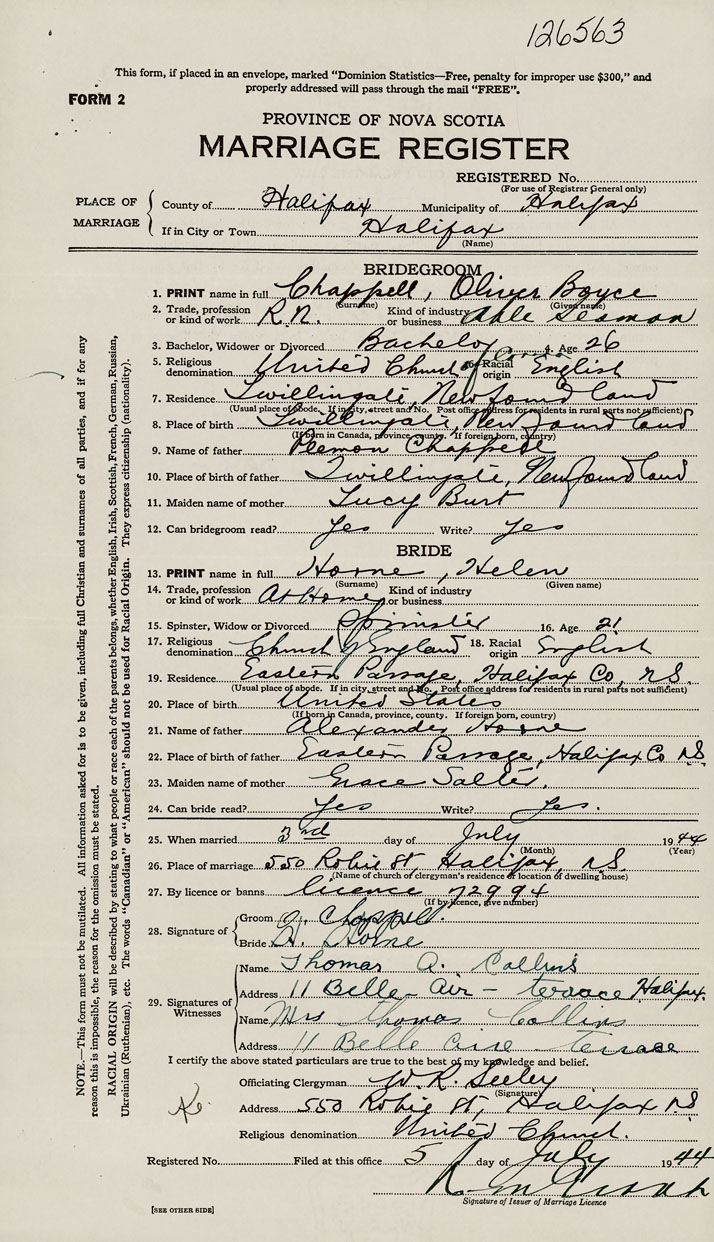 126563
This form, if placed in an envelope, marked "Dominion Statistics—Free, penalty for improper use $300," and
properly addressed will pass through the mail "FREE".
FORM 2
PROVINCE OF NOVA SCOTIA
MARRIAGE REGISTER
REGISTERED No.
(For use of Registrar General only)
PLACE OF MARRIAGE
County of Halifax Municipality of Halifax
If in City or Town Halifax
(Name)
BRIDEGROOM
1. PRINT name in full Chappell, Oliver Boyce
(Surname) (Given name)
2. Trade, profession or kind of work R.N. Kind of industry or business Able Seaman
3. Bachelor, Widower or Divorced Bachelor 4. Age 26
5. Religious denomination United Church of Canada 6. Racial origin English
7. Residence Twillingate, Newfoundland
(Usual place of abode. If in city, street and No. Post office address for residents in rural parts not sufficient)
8. Place of birth Twillingate, Newfoundland
(If born in Canada, province, county. If foreign born, country)
9. Name of father Plemon Chappell
10. Place of birth of father Twillingate, Newfoundland
11. Maiden name of mother Lucy Burt
12. Can bridegroom read? Yes Write? Yes
BRIDE
13. PRINT name in full Horne, Helen
(Surname) (Given name)
14. Trade, profession or kind of work At Home Kind of industry or business
15. Spinster, Widow or Divorced Spinster 16. Age 21
17. Religious denomination Church of England 18. Racial origin English
19. Residence Eastern Passage, Halifax Co, N.S.
(Usual place of abode. If in city, street and No. Post office address for residents in rural parts not sufficient)
20. Place of birth United States
(If born in Canada, province, county. If foreign born, country)
21. Name of father Alexander Horne
22. Place of birth of father Eastern Passage, Halifax Co N.S.
23. Maiden name of mother Grace Salter.
24. Can bride read? Yes Write? Yes.
25. When married 3rd day of July 1944
(Month) (Year)
26. Place of marriage 550 Robie St, Halifax, N.S.
(Name of church of clergyman's residence or location of dwelling house)
27. By licence or banns licence 72994
(If by licence, give number)
28. Signature of
Groom O. Chappell.
Bride H. Horne
29. Signatures of Witnesses
Name Thomas A. Collins
Address 11 Belle-Air-terrace Halifax.
Name Mrs Thomas Collins
Address 11 Belle Aire terrace
I certify the above stated particulars are true to the best of my knowledge and belief.
Officiating Clergyman W. R. Seeley
(Signature)
Address 550 Robie St, Halifax N.S
Religious denomination United Church.
Registered No. Filed at this office 5 day of July 1944
Signature of Issuer of Marriage Licence
[SEE OTHER SIDE]
NOTE.—This form must not be mutilated. All information asked for is to be given, including full Christian and surnames of all parties, and if for any
reason this is impossible, the reason for the omission must be stated.
RACIAL ORIGIN will be described by stating to what people or race each of the parents belongs, whether English, Irish, Scottish, French, German, Russian,
Ukrainian (Ruthenian), etc. The words "Canadian" or "American" should not be used for Racial Origin. They express citizenship (nationality).